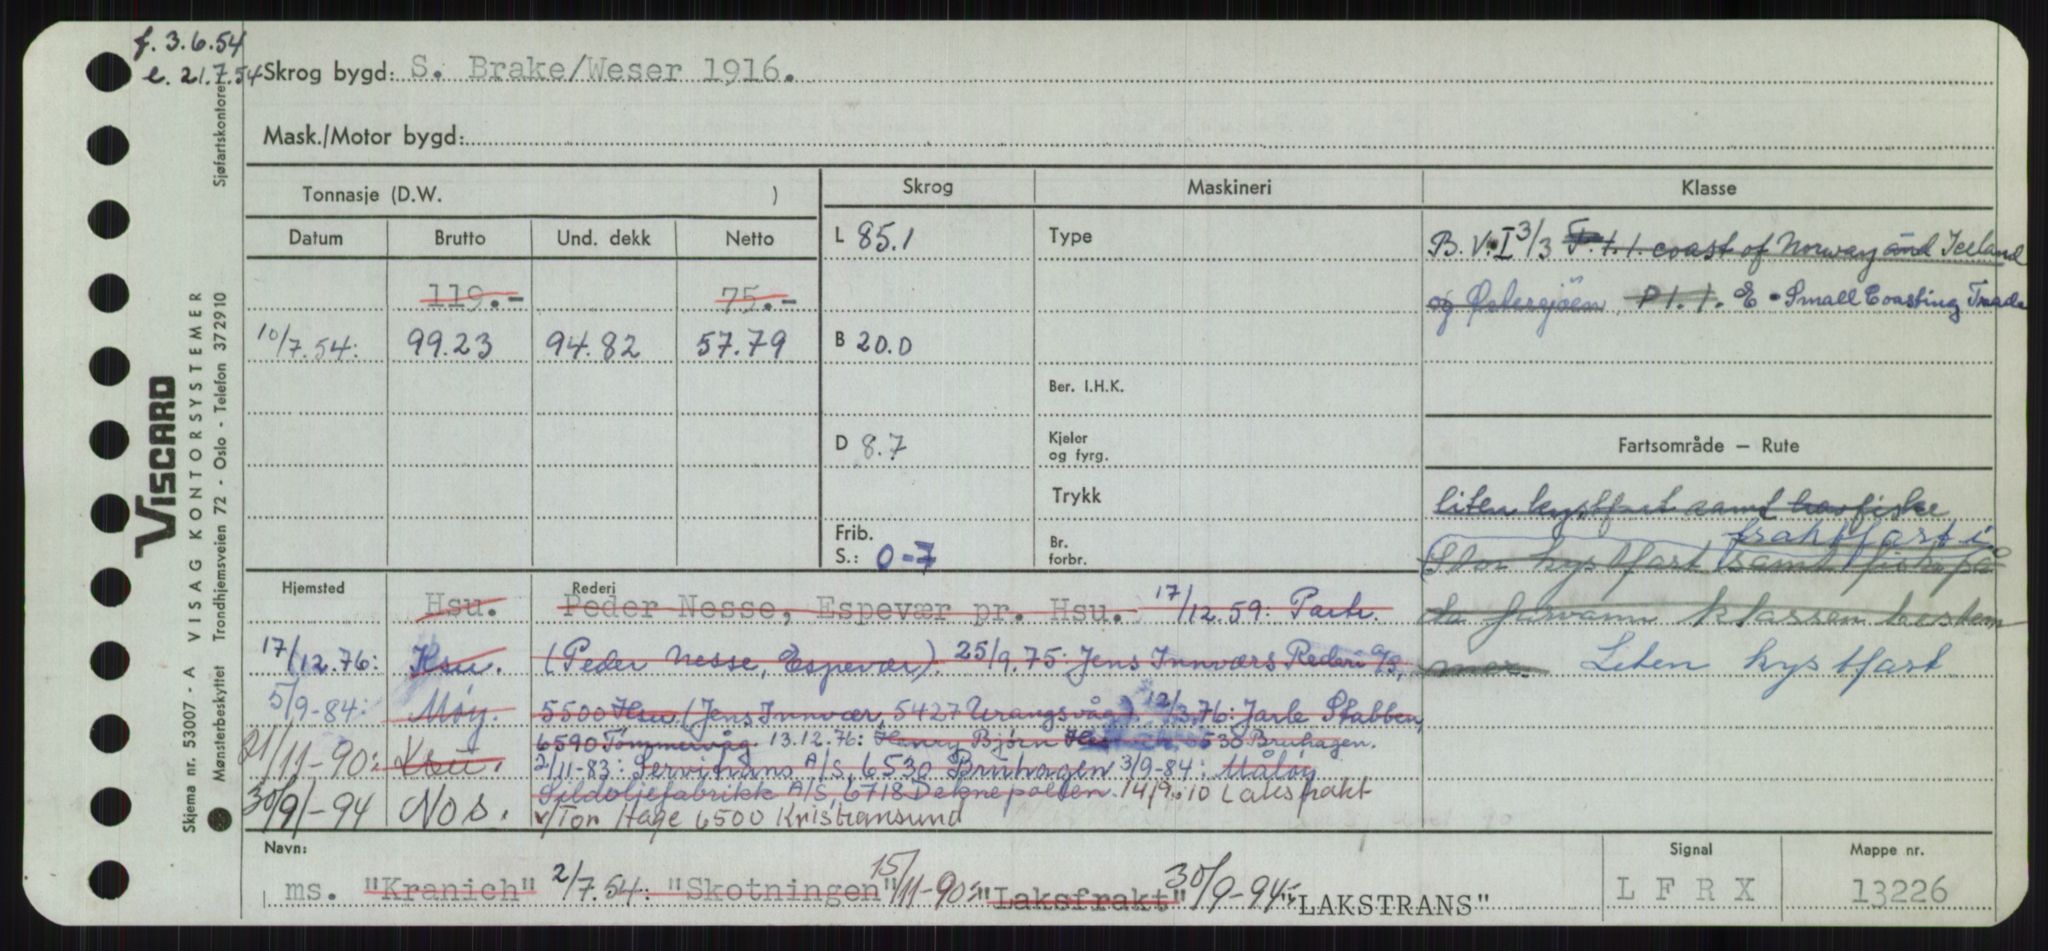 f. 3.6.54
e. 21.7.54 Skrog bygd: S. Brake/Weser 1916.
Mask./Motor bygd:
Tonnasje (D.W. ) Skrog Maskineri Klasse
Datum Brutto Und. dekk Netto L 85.1 Type B. V. I 3/3 F. t. t. coast of Norway and Iceland
119.- 75.- og Østersjøen. Pt. t. E - Small Coasting Trade
10/7.54: 99.23 94.82 57.79 B 20.0
Ber. I.H.K.
D 8.7 Kjeler og fyrg. Fartsområde — Rute
Trykk liten kystfart samt havfiske
fraktfart i
Frib. S.: 0-7 Br. forbr. Stor kystfart samt fiske på
Hjemsted Rederi
Hsu. Peder Nesse, Espevær pr. Hsu. 17/12.59: Partr. de farvann klassen bestem
17/12.76: Ksu. (Peder Nesse, Espevær). 25/9.75: Jens Innværs Rederi A/S, mer. Liten kystfart
5/9-84: Møy. 5500 Hsu (Jens Innvær, 5427 Urangsvåg) 12/3.76: Jarle Stabben,
21/11-90: Ksu. 6590 Tømmervåg. 13.12.76: Henry Bjørn 6530 Bruhagen.
2/11-83: Servitrans A/S, 6530 Bruhagen 3/9-84: Måløy
30/9-94 Nos. Sildoljefabrikk A/S, 6718 Deknepollen. 14/9.: Laksfrakt
v/Tor Hage 6500 Kristiansund
Navn: Signal Mappe nr.
ms. "Kranich" 2/7.54: "Skotningen" 15/11-90: "Laksfrakt" 30/9-94: "LAKSTRANS" L F R X 13226
VISCARD
VISAG KONTORSYSTEMER
Skjema nr. 53007 - A
Mønsterbeskyttet Trondhjemsveien 72 - Oslo - Telefon 372910 Sjøfartskontoret